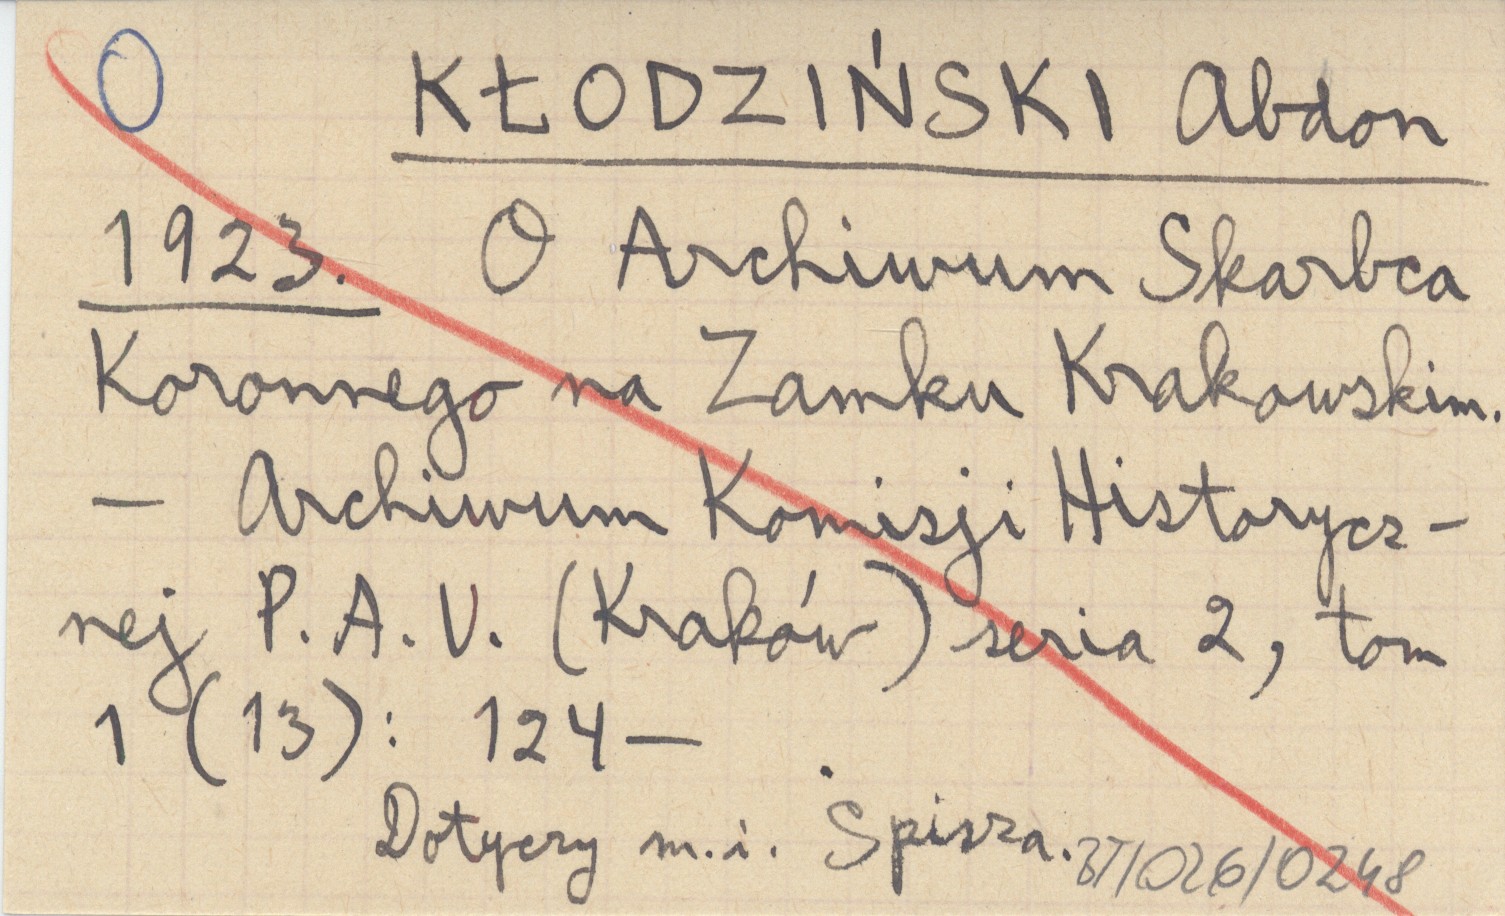 O KŁODZIŃSKI Abdon
1923. O Archiwum Skarbca
Koronnego na Zamku Krakowskim.
— Archiwum Komisji Historycz-
nej P. A. U. (Kraków) seria 2, tom
1 (13): 124—
Dotyczy m.i. Spisza.
BT/026/0248